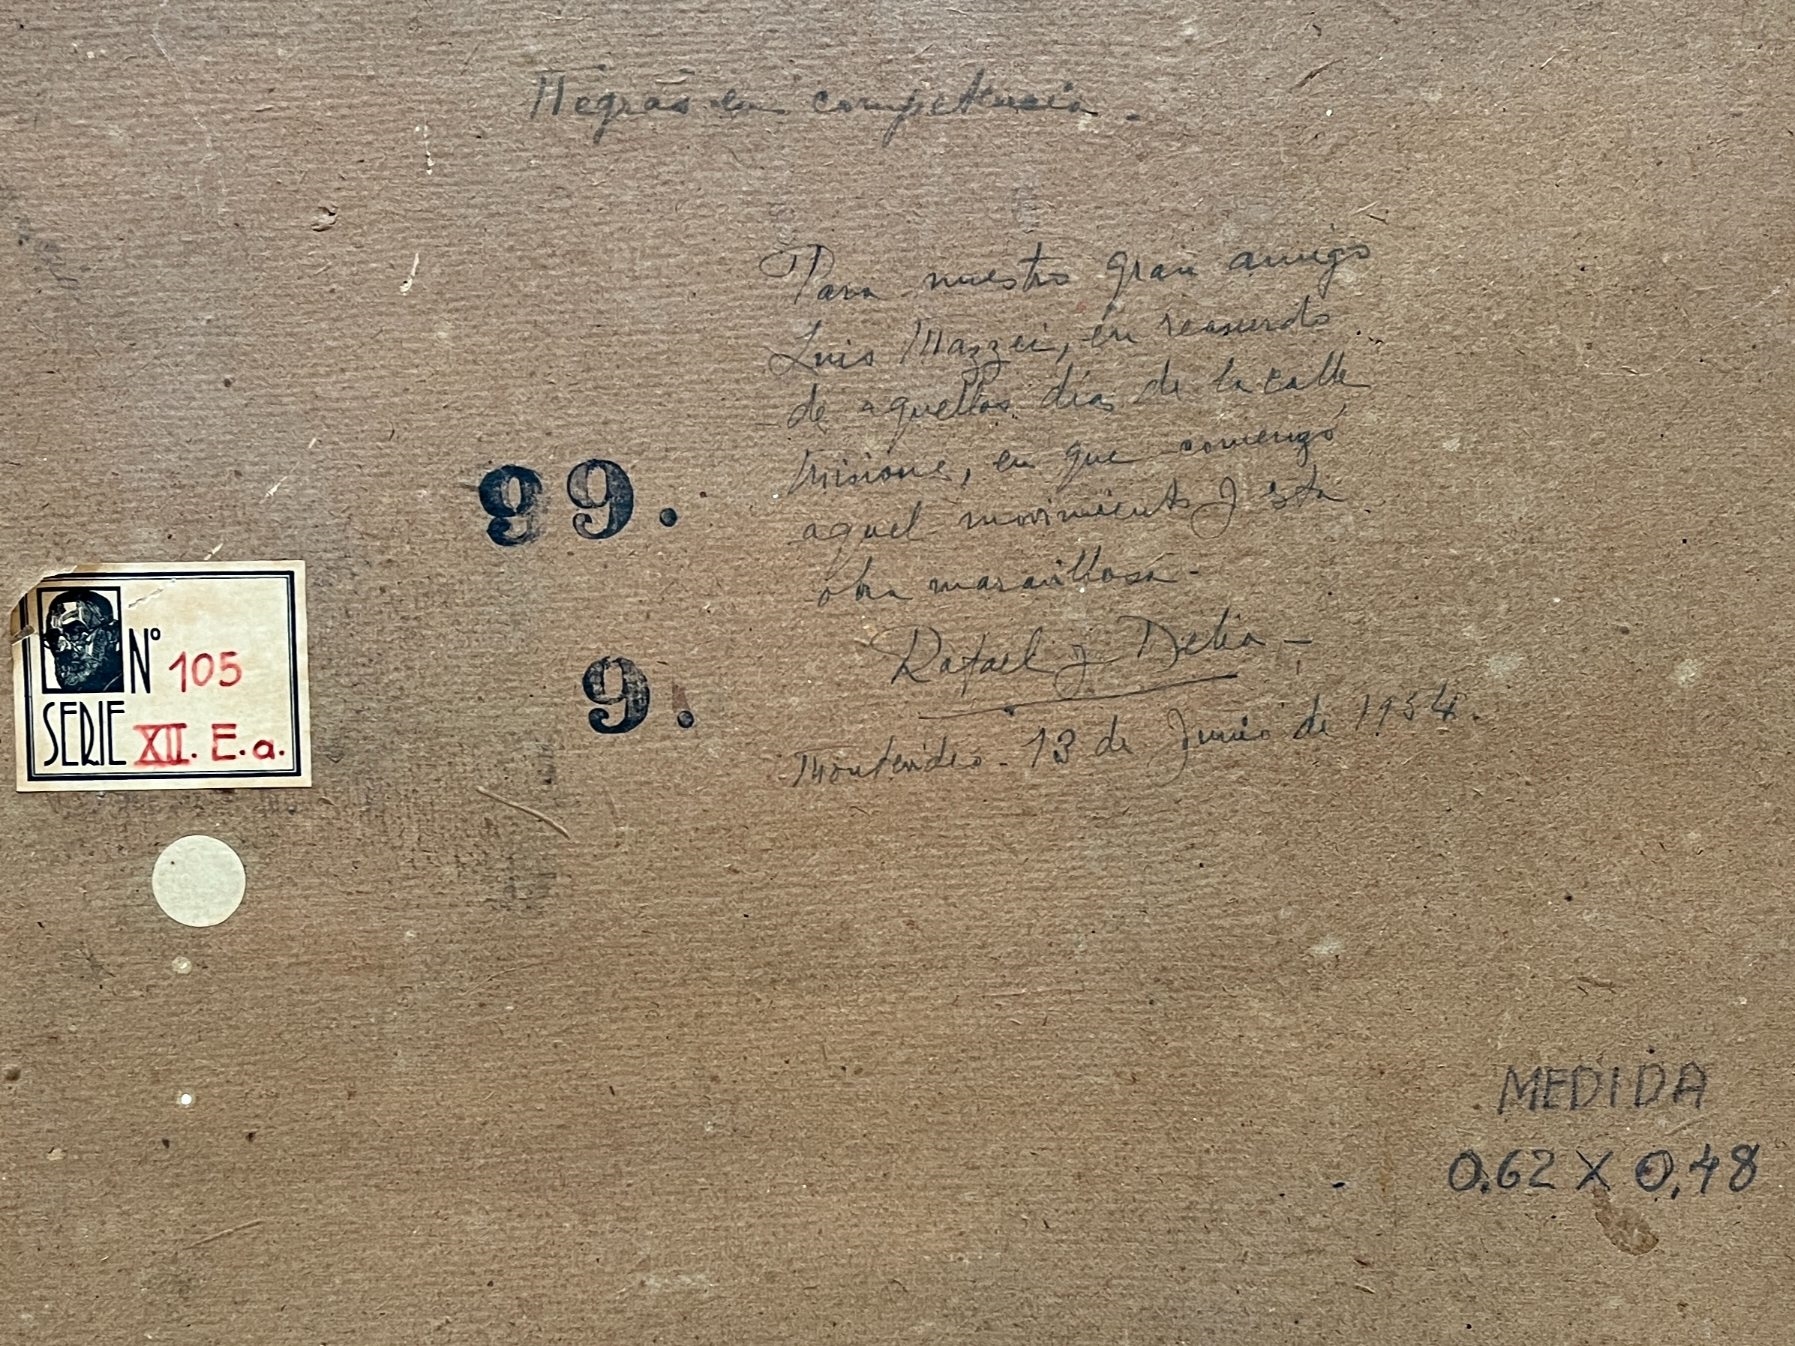 Negras en competencia -
Para nuestro gran amigo
Luis Mazzei, en recuerdo
de aquellos días de la calle
Misiones, en que comenzó
aquel movimiento y esta
obra maravillosa -
Rafael y Delia -
Montevideo - 13 de Junio de 1954.
99.
9.
Nº 105
SERIE XII. E.a.
MEDIDA
0.62 X 0.48